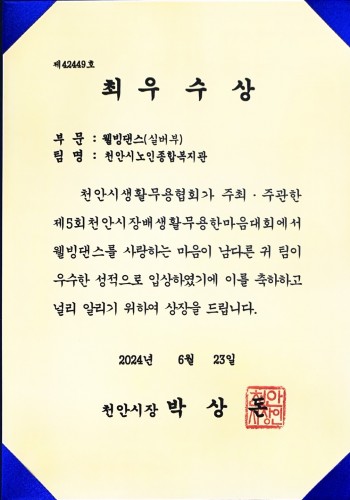 제42449호
최우수상
부 문 : 웰빙댄스(실버부)
팀 명 : 천안시노인종합복지관
천안시생활무용협회가 주최 · 주관한
제5회천안시장배생활무용한마음대회에서
웰빙댄스를 사랑하는 마음이 남다른 귀 팀이
우수한 성적으로 입상하였기에 이를 축하하고
널리 알리기 위하여 상장을 드립니다.
2024년 6월 23일
천안시장 박상돈